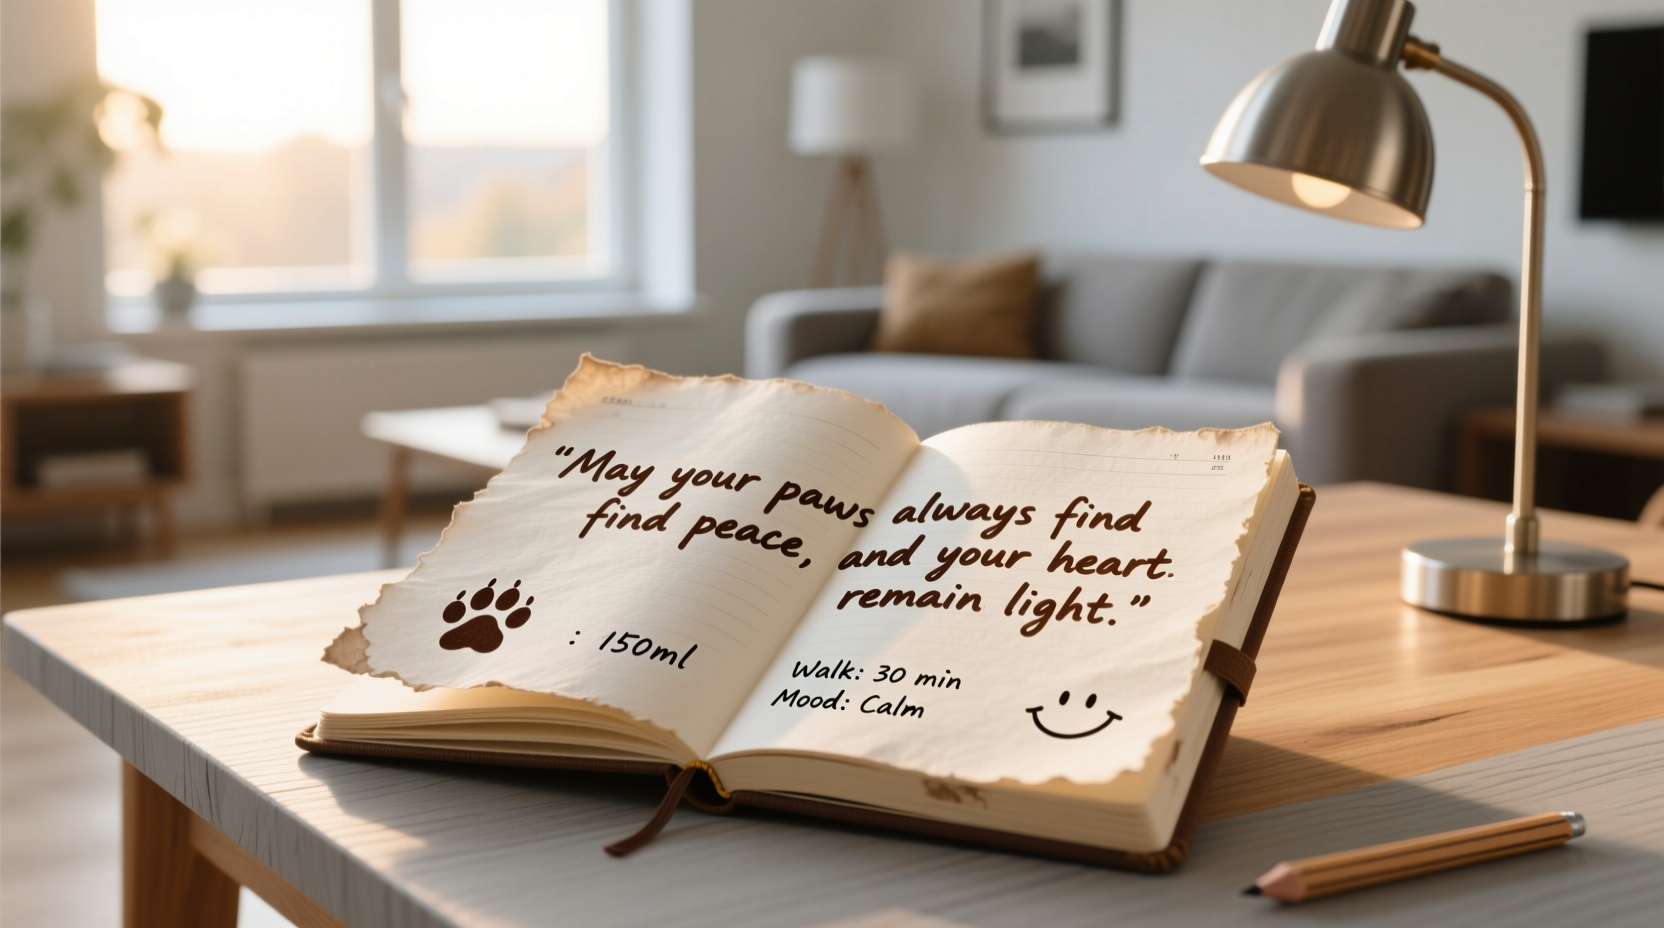 “May your paws always find
find peace, and your heart.
remain light.”
: 150ml
Walk: 30 min
Mood: Calm